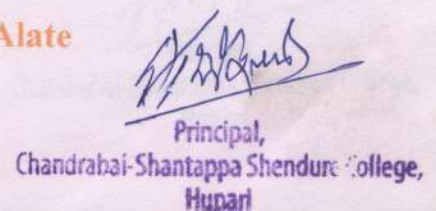 Alate
Principal,
Chandrabai-Shantappa Shendure College,
Hupari